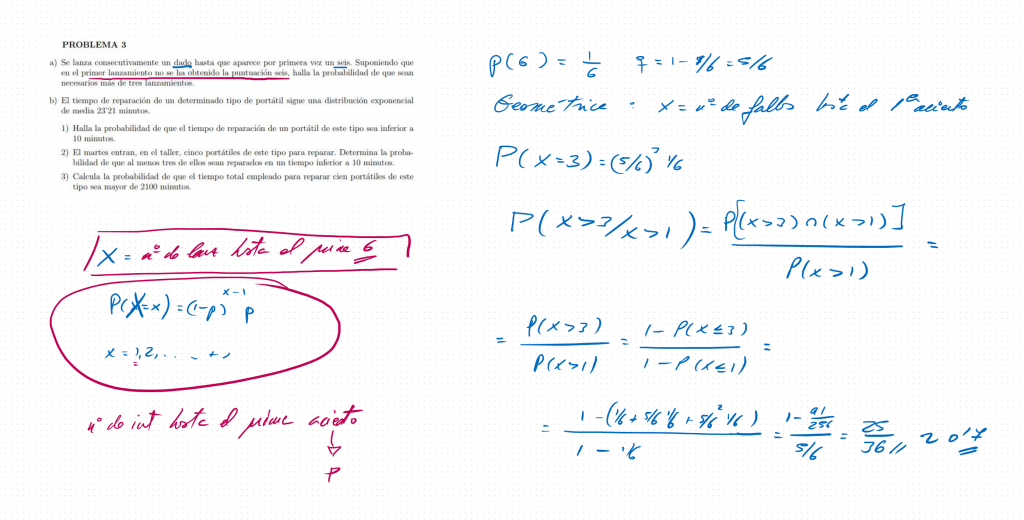 PROBLEMA 3
a) Se lanza consecutivamente un dado hasta que aparece por primera vez un seis. Suponiendo que
en el primer lanzamiento no se ha obtenido la puntuación seis, halla la probabilidad de que sean
necesarios más de tres lanzamientos.
b) El tiempo de reparación de un determinado tipo de portátil sigue una distribución exponencial
de media 23'21 minutos.
1) Halla la probabilidad de que el tiempo de reparación de un portátil de este tipo sea inferior a
10 minutos.
2) El martes entran, en el taller, cinco portátiles de este tipo para reparar. Determina la proba-
bilidad de que al menos tres de ellos sean reparados en un tiempo inferior a 10 minutos.
3) Calcula la probabilidad de que el tiempo total empleado para reparar cien portátiles de este
tipo sea mayor de 2100 minutos.
X = nº de hasta el prime 6
P(X=x) = (1-p)^(x-1) p
x = 1, 2, ...
nº de int hasta el prime acierto
p
P(6) = 1/6 q = 1 - 1/6 = 5/6
Geométrica : X = nº de fallos hasta el 1er acierto
P(X=3) = (5/6)^3 1/6
P(X>3/X>1) = P[(X>3)∩(X>1)] / P(X>1) =
= P(X>3) / P(X>1) = 1 - P(X≤3) / 1 - P(X≤1) =
= 1 - (1/6 + 5/6 1/6 + 5/6^2 1/6) / 1 - 1/6 = 1 - 91/256 / 5/6 = 25/36 ≃ 0'7